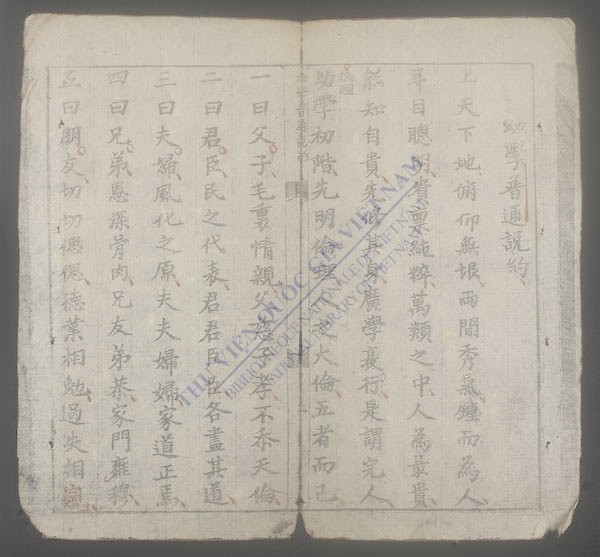 幼學普通說約
上天下地俯仰無垠兩間秀氣鍾而為人
耳目聰明貴稟純粹萬類之中人為最貴
能知自貴先修其身廣學褱行是謂完人
倫理
幼學初階先明倫理人之大倫五者而已
幼學普通說約
二
一曰父子毛裏情親父慈子孝不忝天倫
二曰君臣民之代表君君臣臣各盡其道
三曰夫婦風化之原夫夫婦婦家道正焉
四曰兄弟恩深骨肉兄友弟恭家門雍穆
五曰朋友切切偲偲德業相勉過失相規
THƯ VIỆN QUỐC GIA VIỆT NAM
BIBLIOTHÈQUE NATIONALE DU VIETNAM
NATIONAL LIBRARY OF VIETNAM